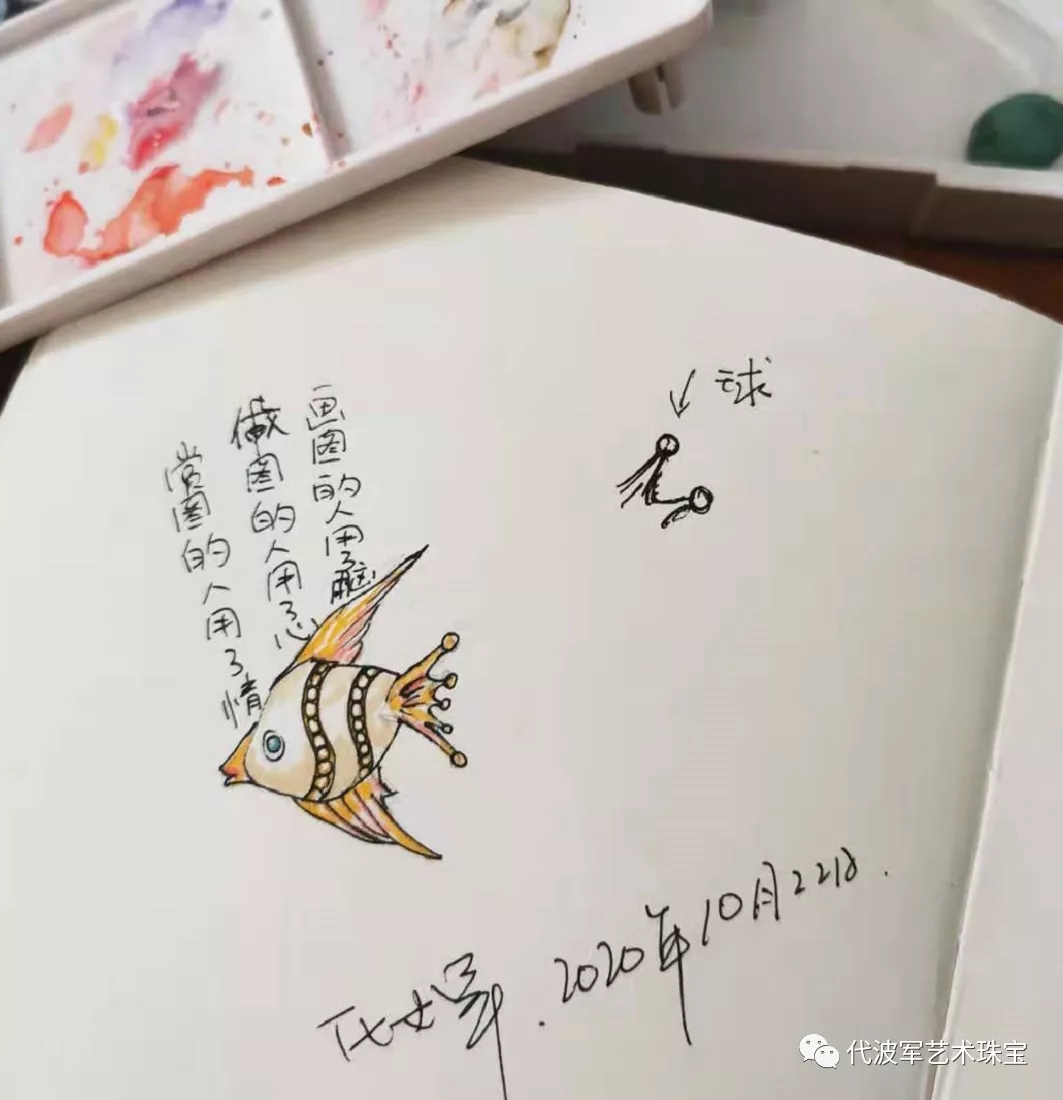 画图的人用了脑
做图的人用了心
赏图的人用了情
球
代波军.2020年10月22日.
代波军艺术珠宝